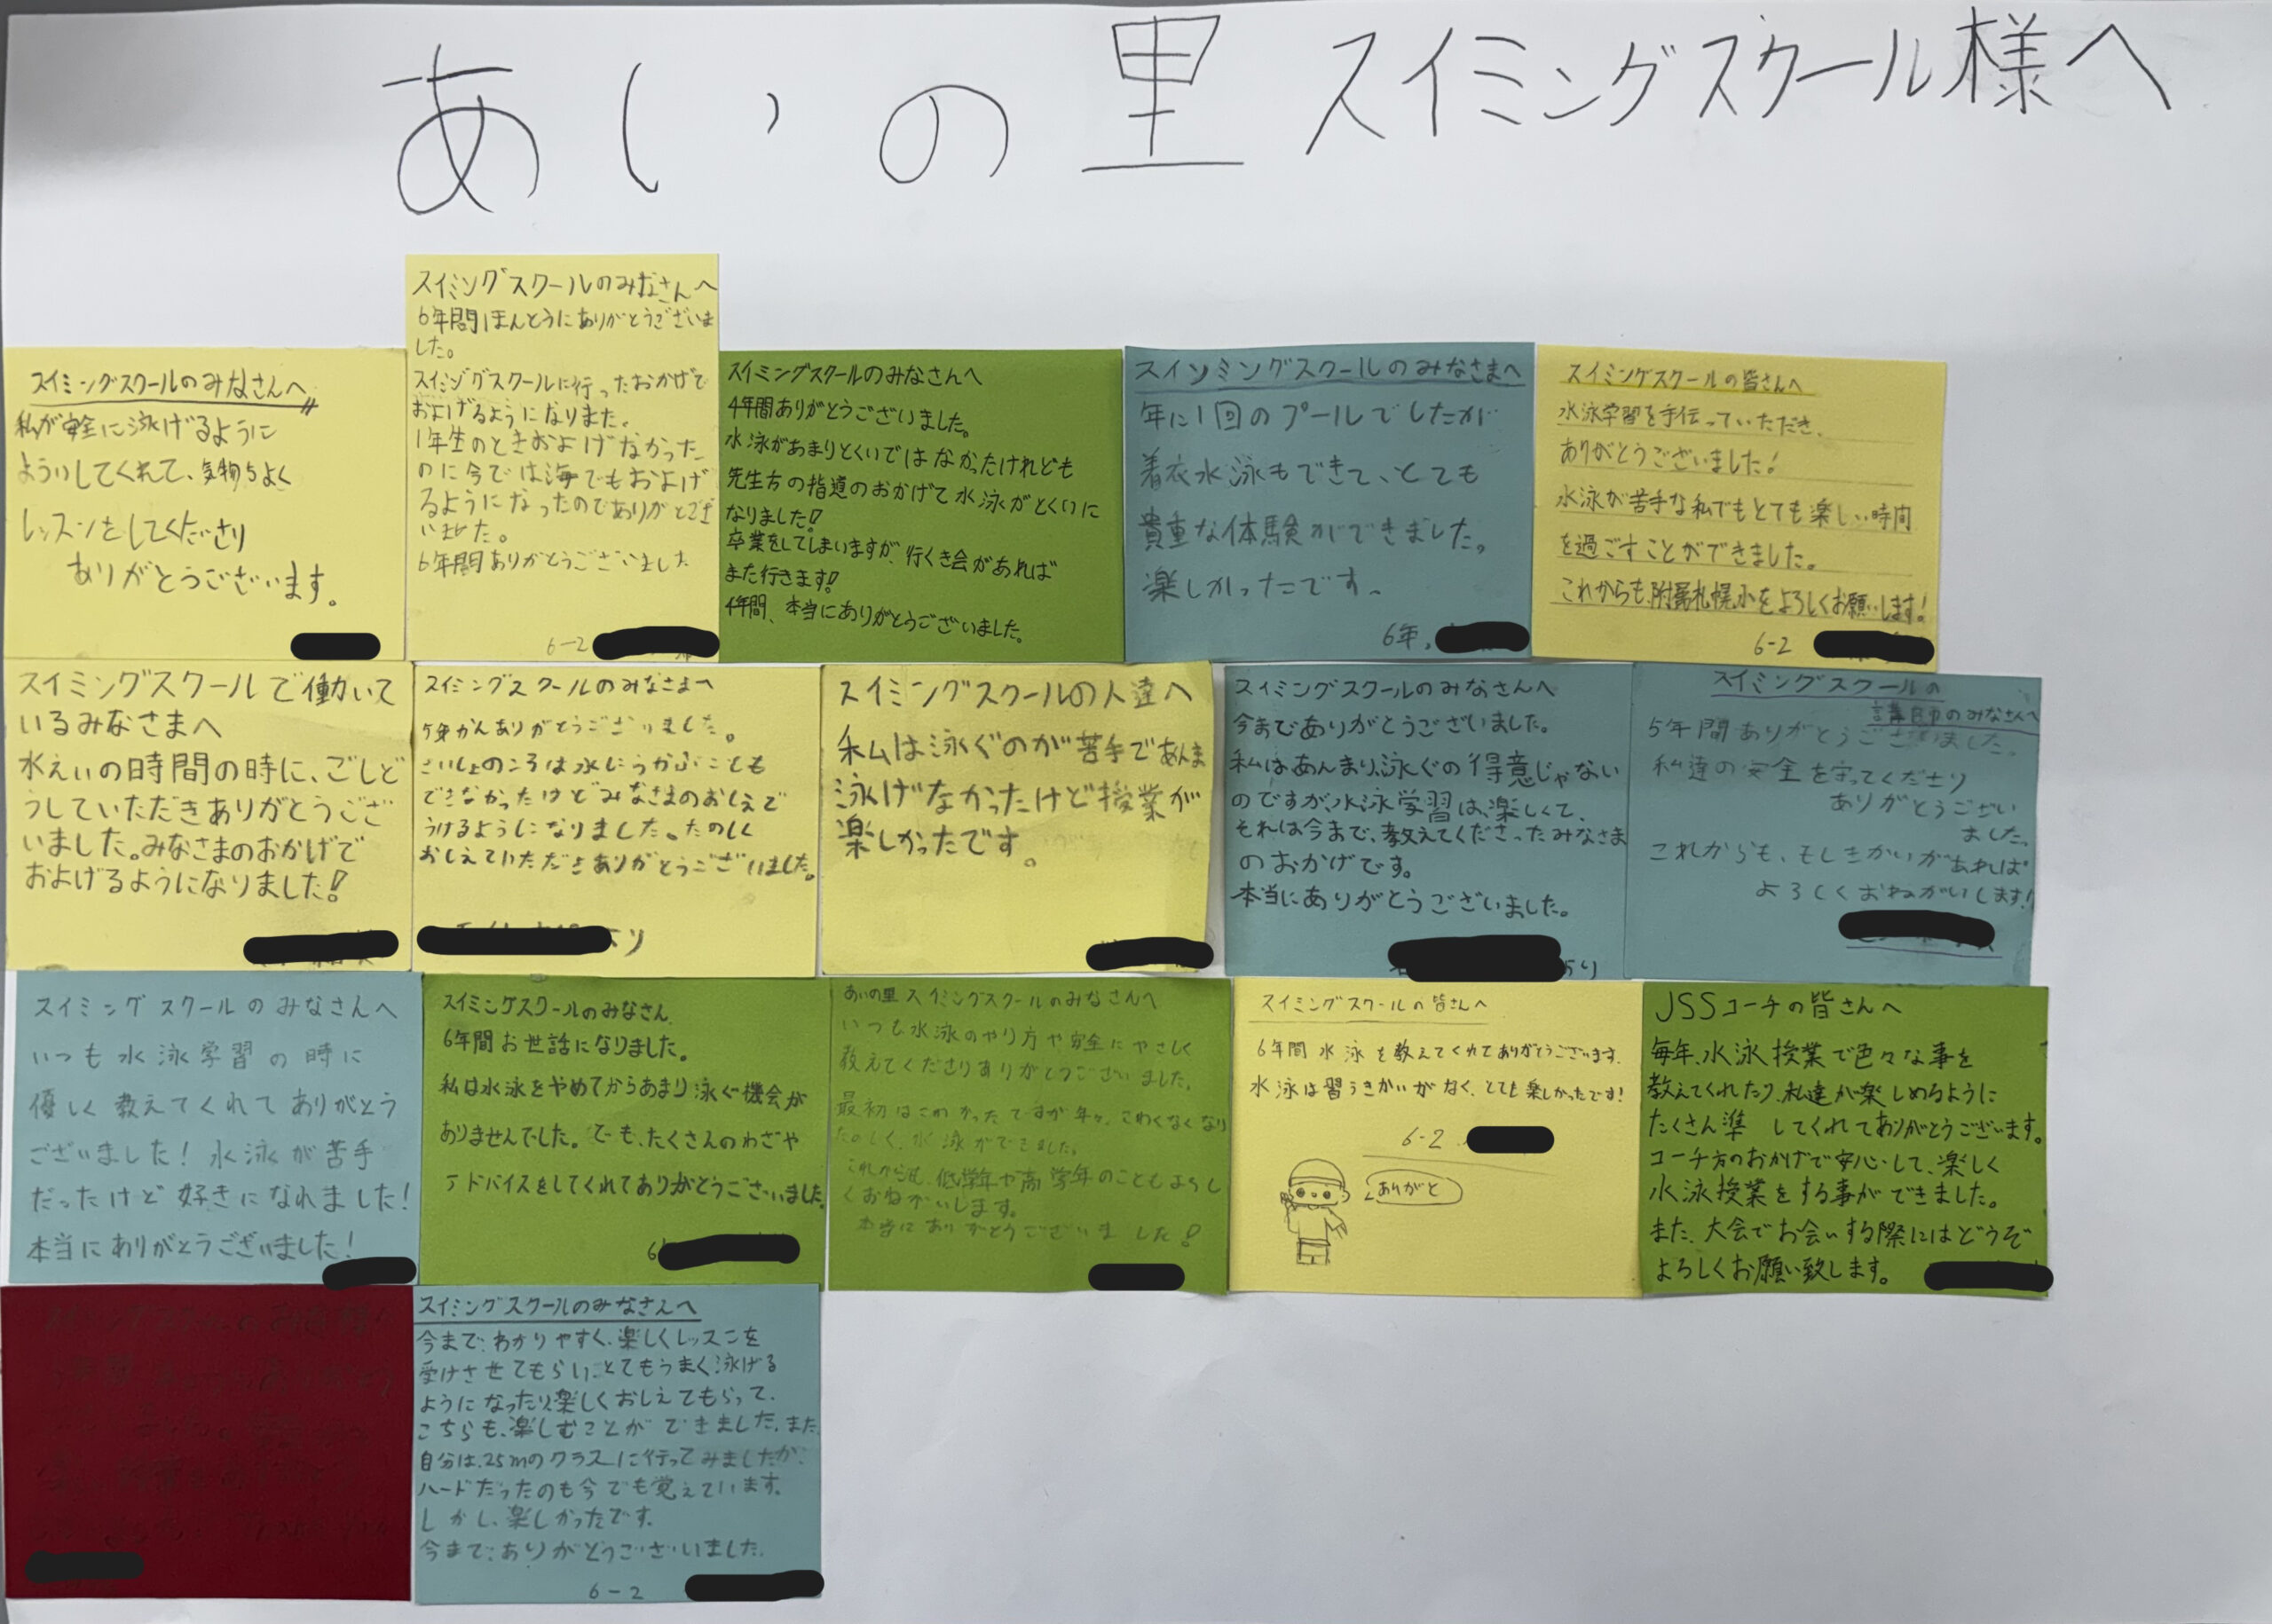 あいの里スイミングスクール様へ
スイミングスクールのみなさんへ
私が安全に泳げるように
してくれて、気持ちよく
レッスンをしてくださり
ありがとうございます。
スイミングスクールのみなさんへ
6年間ほんとうにありがとうございま
した。
スイミングスクールに行ったおかげで
およげるようになりました。
1年生のときおよげなかった
のに今では海でもおよげ
るようになったのでありがとうござ
いました。
6年間ありがとうございました
6-2
スイミングスクールのみなさんへ
4年間ありがとうございました。
水泳があまりとくいではなかったけれども
先生方の指導のおかげで水泳がとくいに
なりました!
卒業をしてしまいますが、行くき会があれば
また行きます!
4年間、本当にありがとうございました。
スイミングスクールのみなさまへ
年に1回のプールでしたが
着衣水泳もできて、とても
貴重な体験ができました。
楽しかったです。
6年
スイミングスクールの皆さんへ
水泳学習を手伝っていただき、
ありがとうございました!
水泳が苦手な私でもとても楽しい時間
を過ごすことができました。
これからも、附属札幌小をよろしくお願いします!
6-2
スイミングスクールで働いて
いるみなさまへ
水えいの時間の時に、ごしど
うしていただきありがとうござ
いました。みなさまのおかげで
およげるようになりました!
スイミングスクールのみなさまへ
5年かんありがとうございました。
さいしょのころは水にうかぶことも
できなかったけどみなさまのおしえで
うけるようになりました。たのしく
おしえていただきありがとうございました。
より
スイミングスクールの人達へ
私は泳ぐのが苦手であんま
泳げなかったけど授業が
楽しかったです。
スイミングスクールのみなさんへ
今までありがとうございました。
私はあんまり、泳ぐの得意じゃない
のですが、水泳学習は、楽しくて、
それは今まで、教えてくださったみなさま
のおかげです。
本当にありがとうございました。
より
スイミングスクールの
講師のみなさんへ
5年間ありがとうございました。
私達の安全を守ってくださり
ありがとうござい
ました。
これからも、もしきかいがあれば
よろしくおねがいします!
スイミングスクールのみなさんへ
いつも水泳学習の時に
優しく教えてくれてありがとう
ございました!水泳が苦手
だったけど好きになれました!
本当にありがとうございました!
スイミングスクールのみなさん
6年間お世話になりました。
私は水泳をやめてからあまり泳ぐ機会が
ありませんでした。でも、たくさんのわざや
アドバイスをしてくれてありがとうございました
あいの里スイミングスクールのみなさんへ
いつも水泳のやり方や安全にやさしく
教えてくださりありがとうございました。
最初はこわかったですが年々、こわくなくなり
たのしく、水泳ができました。
これからも、低学年や高学年のこともよろし
くおねがいします。
本当にありがとうございました!
スイミングスクールの皆さんへ
6年間水泳を教えてくれてありがとうございます。
水泳は習うきかいがなく、とても楽しかったです!
6-2
ありがと
JSSコーチの皆さんへ
毎年、水泳授業で色々な事を
教えてくれたり、私達が楽しめるように
たくさん準 してくれてありがとうございます。
コーチ方のおかげで安心して、楽しく
水泳授業をする事ができました。
また、大会でお会いする際にはどうぞ
よろしくお願い致します。
スイミングスクールのみなさんへ
今まで、わかりやすく、楽しくレッスンを
受けさせてもらい、とてもうまく泳げる
ようになったり、楽しくおしえてもらって、
こちらも、楽しむことができました。また、
自分は、25mのクラスに行ってみましたが、
ハードだったのも今でも覚えています。
しかし、楽しかったです。
今まで、ありがとうございました。
6-2